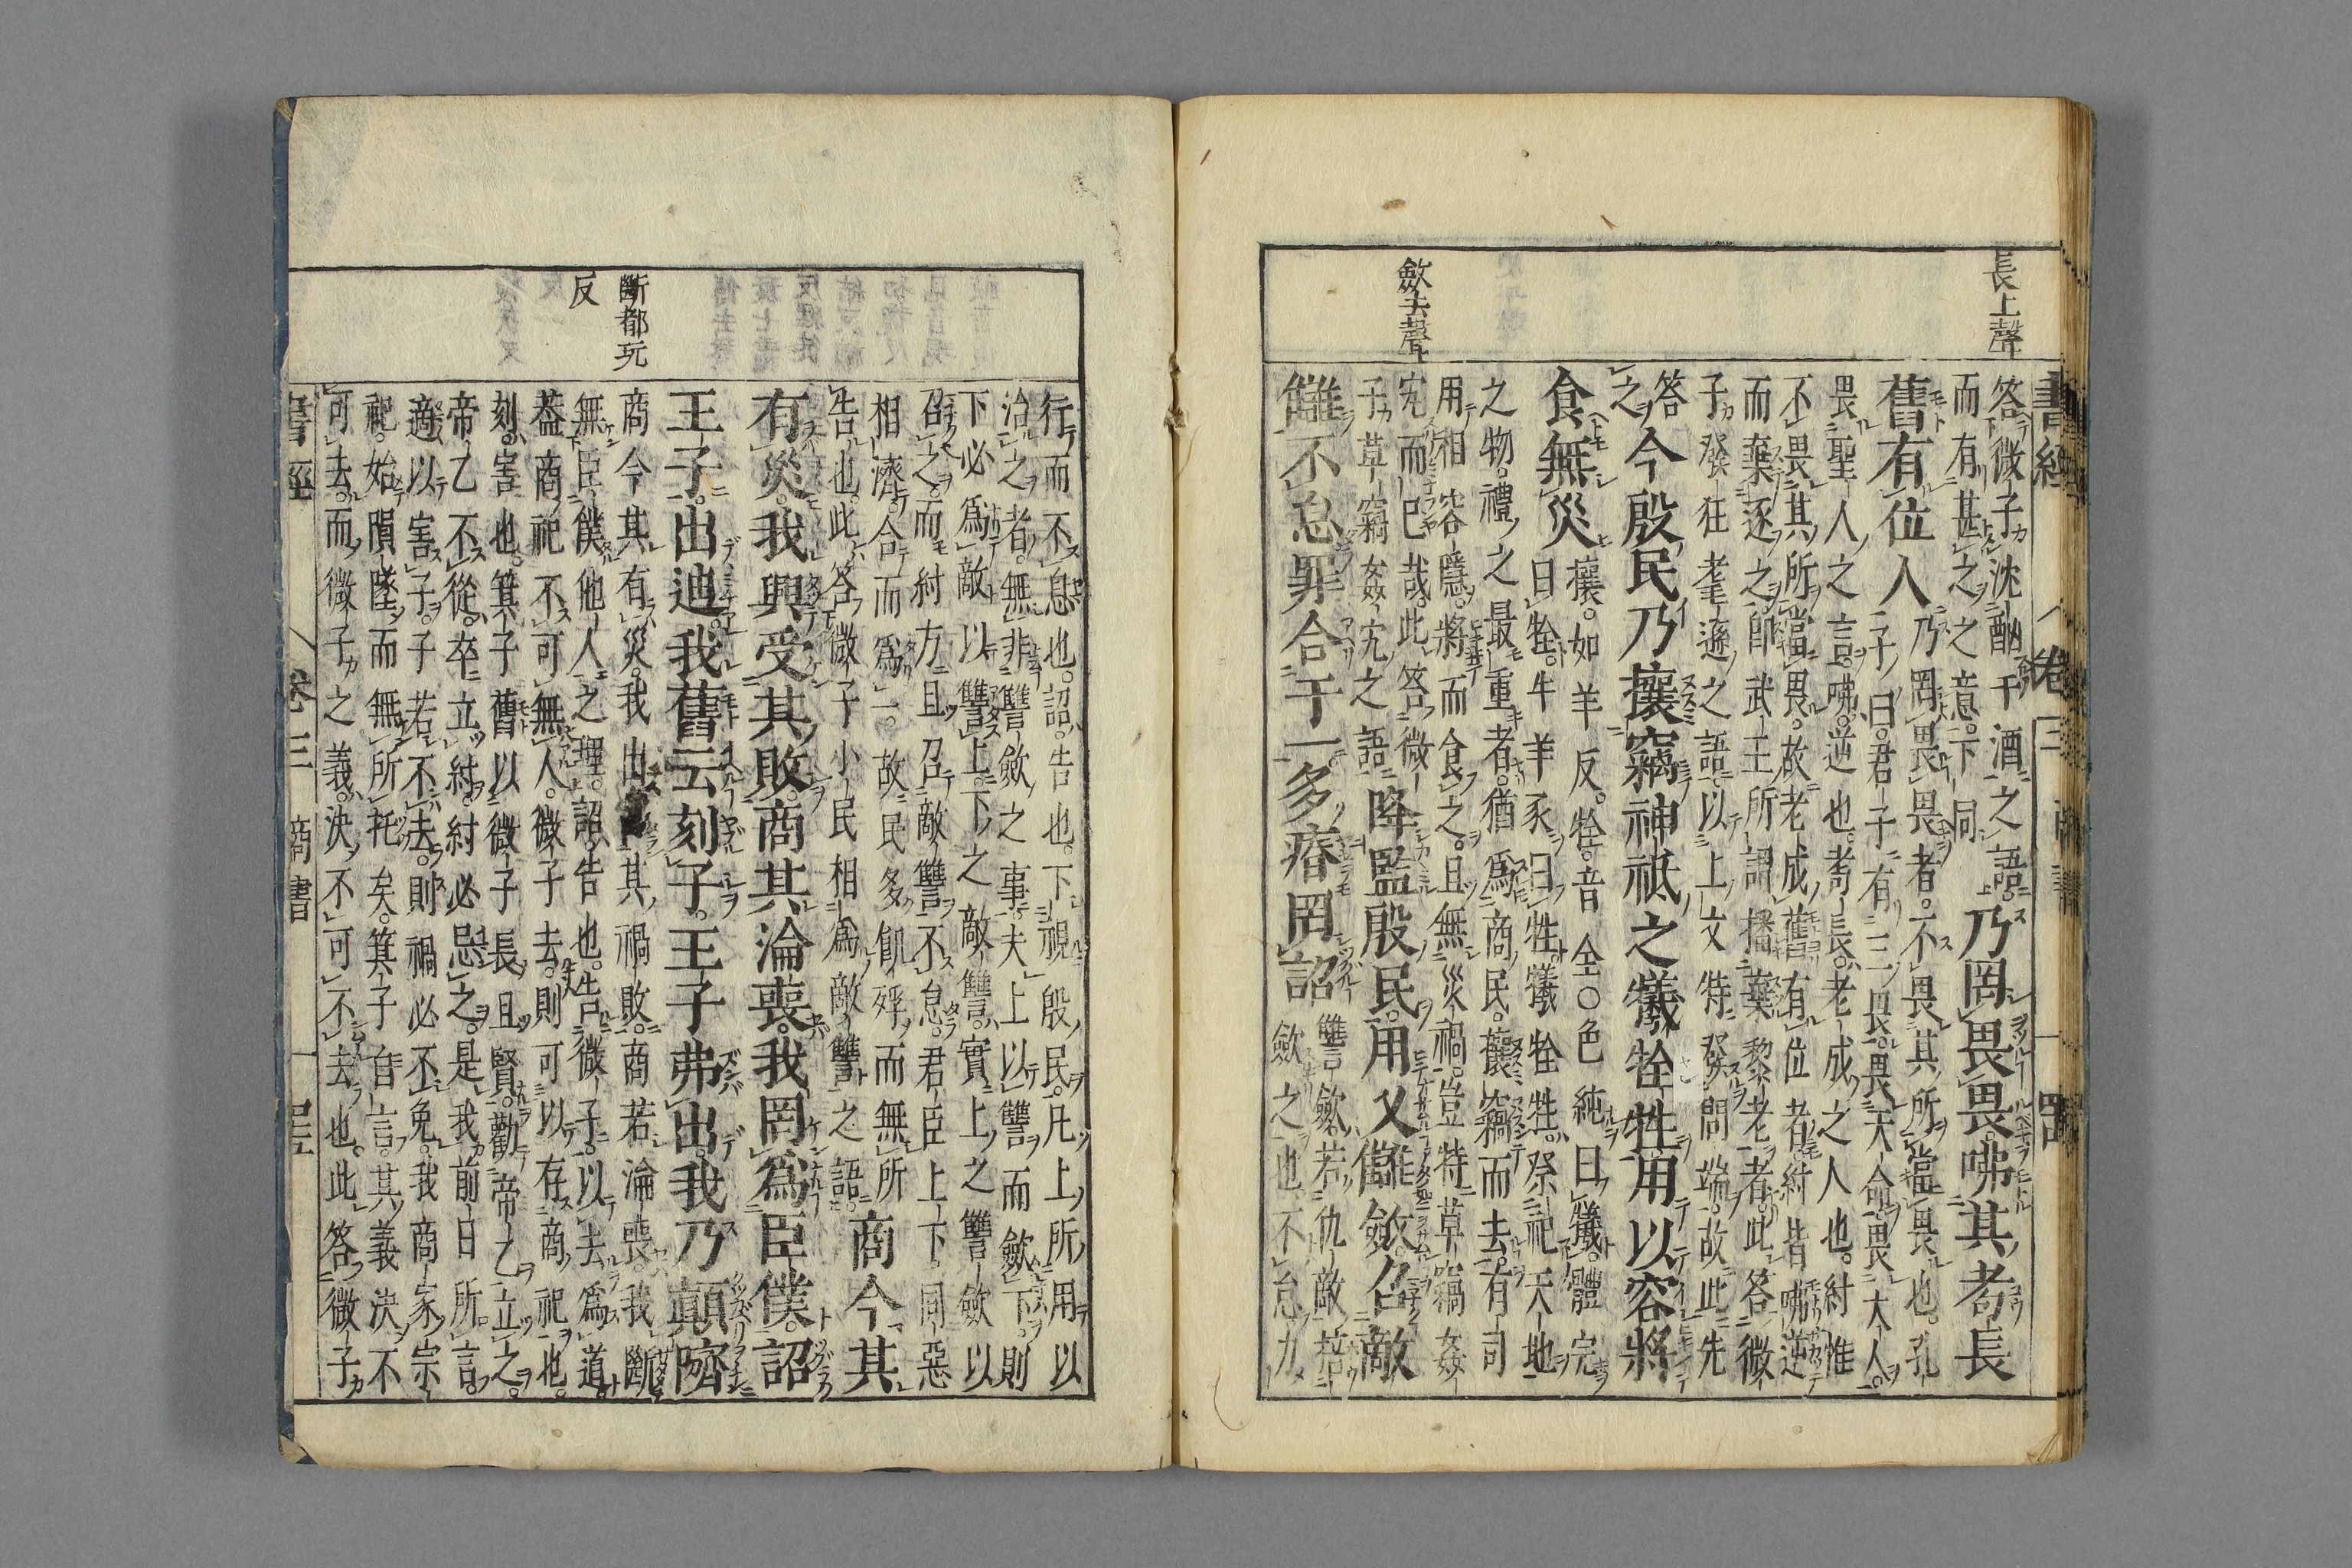 長上聲
斂去聲
書經 卷三 商書
答微子沈酗于酒之語
而有甚之之意下同
乃罔畏畏咈其耇長
舊有位人
乃罔畏畏者不畏其所當畏也孔
子曰君子有三畏畏天命畏大人
畏聖人之言咈逆也耇長老成之人也紂惟
不畏其所當畏故老成舊有位者紂皆咈逆
而棄逐之卽武王所謂播棄黎老者此答微
子發狂耄遜之語以上文特發問端故此先
答
之
今殷民乃攘竊神祇之犧牷牲用以容將
食無災
攘如羊反牷音全○色純曰犧體完
曰牷牛羊豕曰牲犧牷牲祭祀天地
之物禮之最重者猶爲商民攘竊而去有司
用相容隱將而食之且無災禍豈特草竊姦
宄而已哉此答微
子草竊姦宄之語
降監殷民用乂讎斂召敵
讎不怠罪合于一多瘠罔詔
讎斂若仇敵掊
斂之也不怠力
斷都玩
反
行而不息也詔告也下視殷民凡上所用以
治之者無非讎斂之事夫上以讎而斂下則
下必爲敵以讎上下之敵讎實上之讎斂以
召之而紂方且召敵讎不怠君臣上下同惡
相濟合而爲一故民多飢殍而無所
告也此答微子小民相爲敵讎之語
商今其
有災我興受其敗商其淪喪我罔爲臣僕詔
王子出迪我舊云刻子王子弗出我乃顛隮
商今其有災我出當其禍敗商若淪喪我斷
無臣僕他人之理詔告也告微子以去爲道
蓋商祀不可無人微子去則可以存商祀也
刻害也箕子舊以微子長且賢勸帝乙立之
帝乙不從卒立紂紂必忌之是我前日所言
適以害子子若不去則禍必不免我商家宗
祀始隕墜而無所托矣箕子自言其義決不
可去而微子之義決不可不去也此答微子
書經 卷三 商書